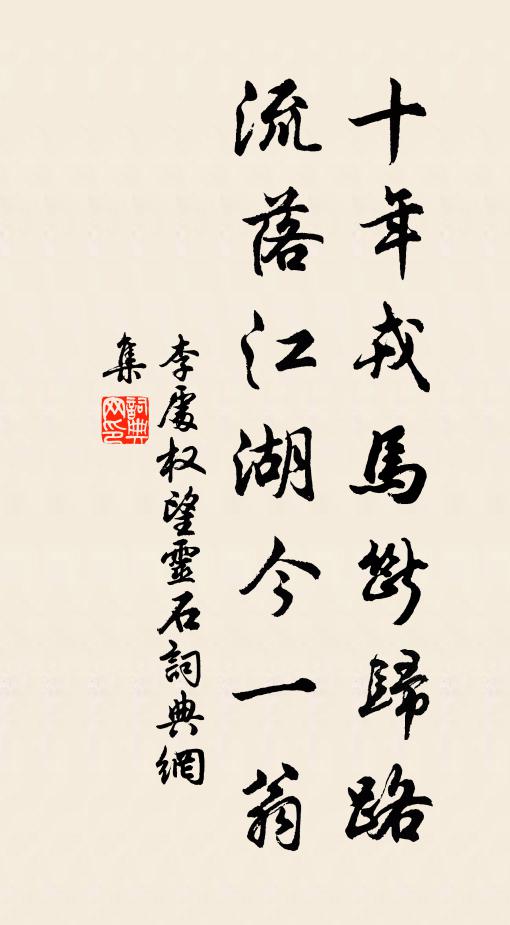 十年戎馬斷歸路
流落江湖今一翁
李處权望靈石詞典網
集
詞典
网印